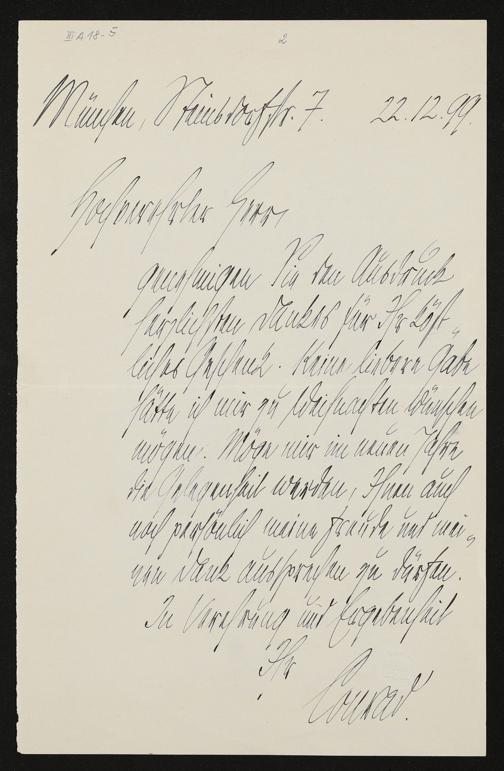 III A 18-5
2
München, Steinsdorfstr. 7. 22.12.99.
Hochverehrter Herr,
genehmigen Sie den Ausdruck
herzlichsten Dankes für Ihr köst-
liches Geschenk. Keine liebere Gabe
hätte ich mir zu Weihnachten wünschen
mögen. Möge mir im neuen Jahre
die Gelegenheit werden, Ihnen auch
noch persönlich meine Freude und mei-
nen Dank aussprechen zu dürfen.
In Verehrung und Ergebenheit
Ihr
Conrad.